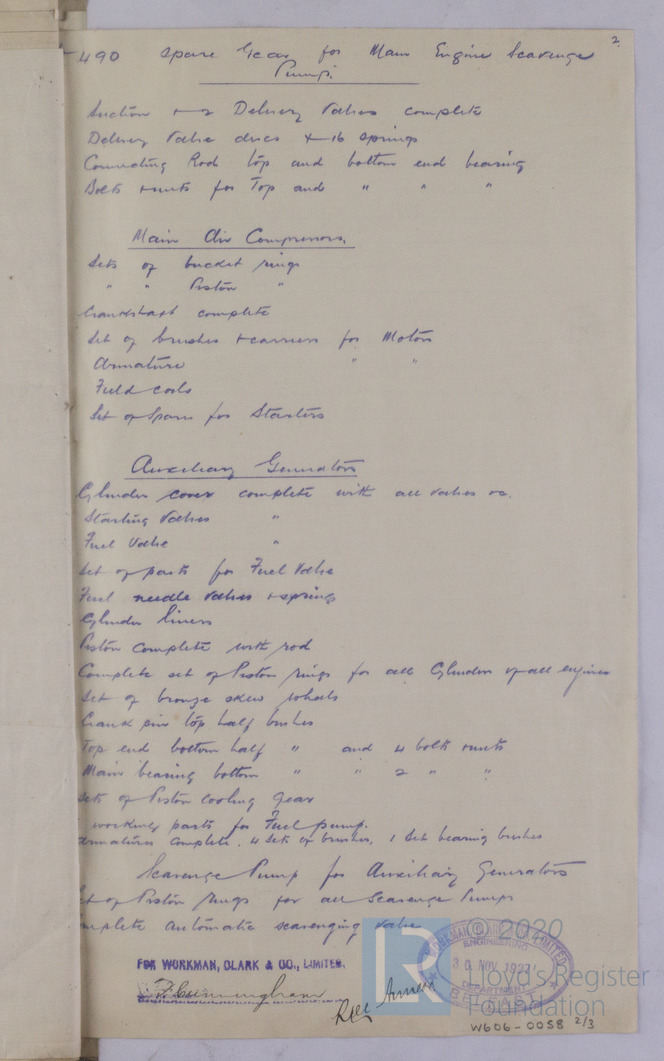 2.
490 Spare Gear for Main Engine Scavenge
Pump.
Suction + 2 Delivery Valves complete
Delivery Valve discs + 16 springs
Connecting Rod top and bottom end bearing
Bolts + nuts for Top and " " "
Main Air Compressors.
Sets of bucket rings
" " Piston "
Crankshaft complete
Set of brushes + carriers for Motors
Armature " "
Field coils
Set of Spares for Starters
Auxiliary Generators
Cylinder cover complete with all valves &c.
Starting Valves "
Fuel Valve "
Set of parts for Fuel Valve
Fuel needle valves + springs
Cylinder liners
Piston complete with rod
Complete set of Piston rings for all Cylinders of all engines
Set of bronze skew wheels
Crank pin top half bushes
Top end bottom half " and 4 bolts + nuts
Main bearing bottom " " 2 " "
Sets of Piston cooling gear
working parts for Fuel pump.
Armatures complete, 4 sets of brushes, 1 set bearing bushes
Scavenge Pump for Auxiliary Generators
Set of Piston rings for all Scavenge Pumps
Complete automatic scavenging valve
FOR WORKMAN, CLARK & CO., LIMITED.
F. Cunningham
WORKMAN, CLARK LIMITED
ENGINEERING
30 NOV 1927
DEPARTMENT
BELFAST
© 2020
Lloyd's Register
Foundation
W606-0058 2/3